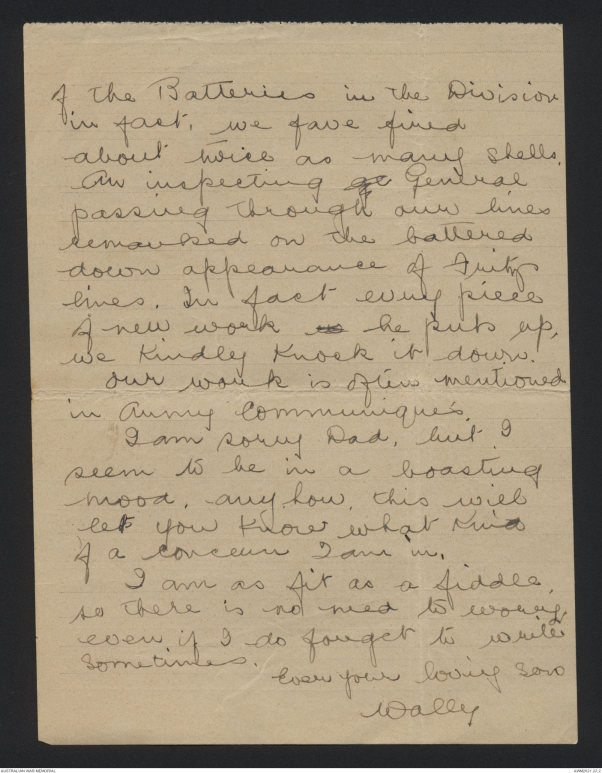 of the Batteries in the Division
in fact, we have fired
about twice as many shells.
An inspecting ge General
passing through our lines
remarked on the battered
down appearance of Fritz's
lines. In fact every piece
of new work he puts up,
we kindly knock it down.
Our work is often mentioned
in Army Communiques.
I am sorry Dad, but I
seem to be in a boasting
mood, any how, this will
let you know what kind
of a concern I am in.
I am as fit as a fiddle,
so there is no need to worry,
even if I do forget to write
sometimes.
Ever your loving son
Wally
AUSTRALIAN WAR MEMORIAL